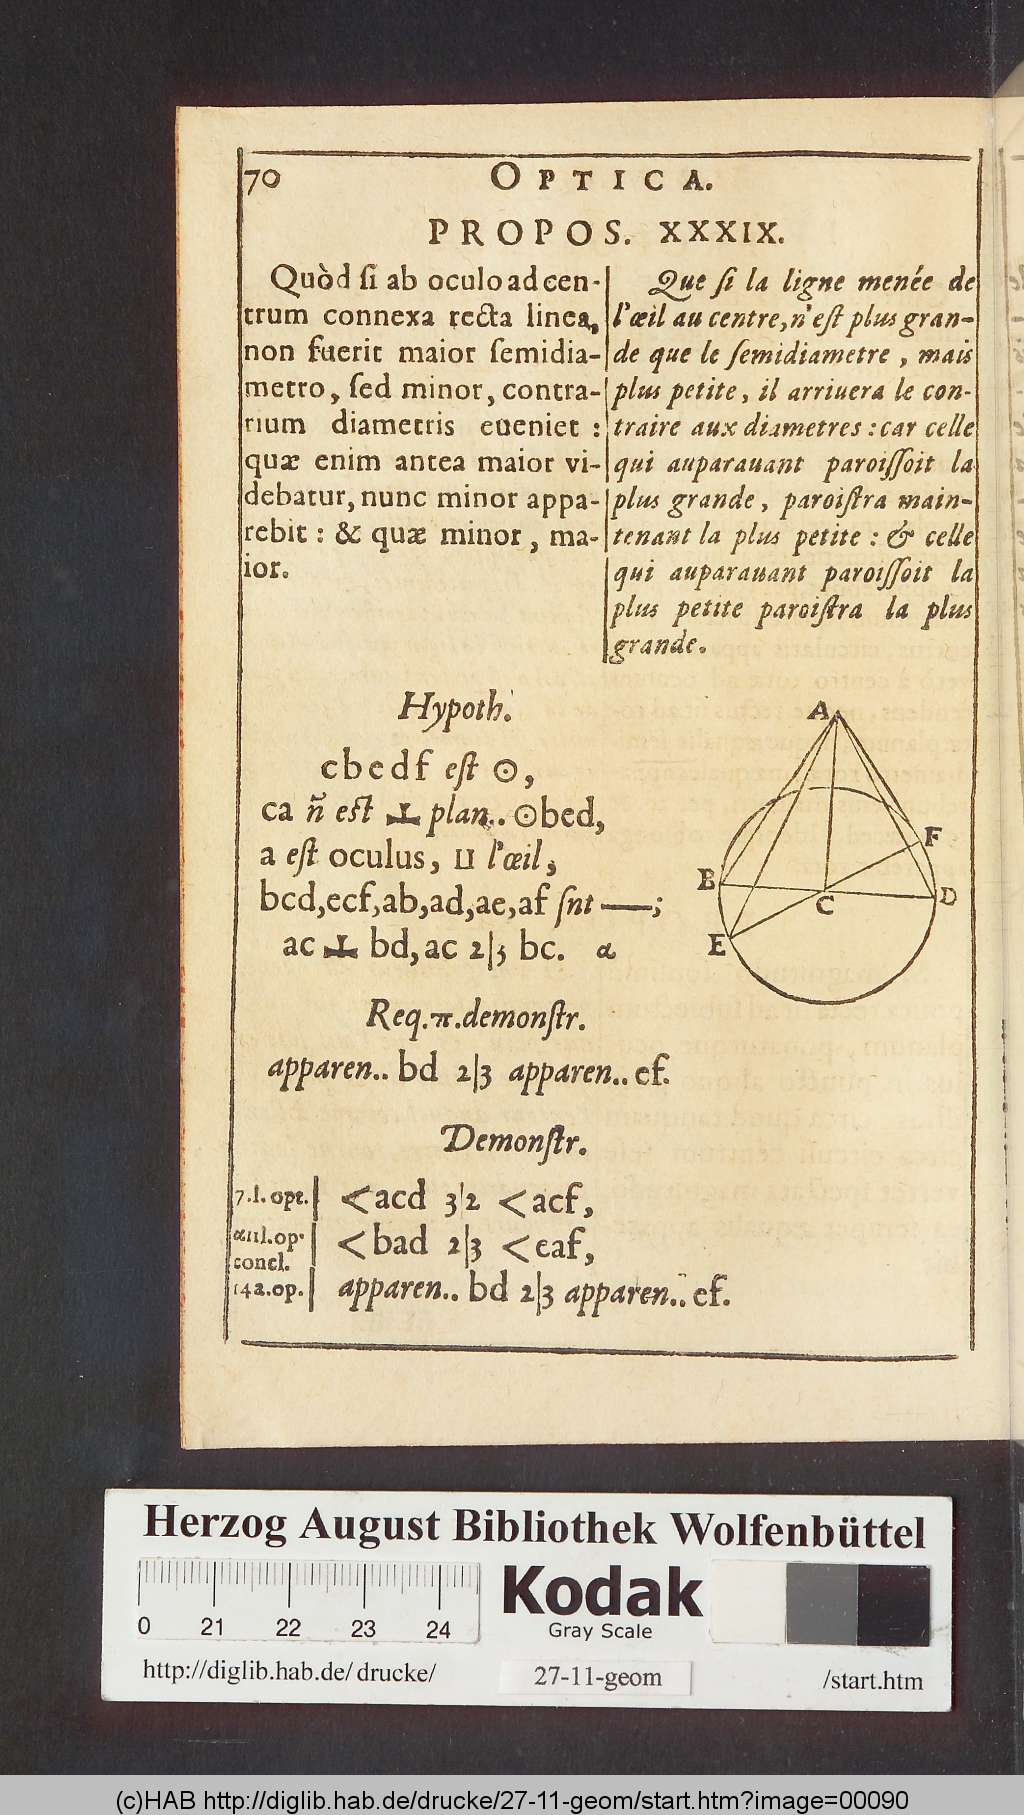 70
OPTICA.
PROPOS. XXXIX.
Quòd ſi ab oculo ad cen-
trum connexa recta linea,
non fuerit maior ſemidia-
metro, ſed minor, contra-
rium diametris eueniet :
quæ enim antea maior vi-
debatur, nunc minor appa-
rebit : & quæ minor, ma-
ior.
Que ſi la ligne menée de
l'œil au centre, n'eſt plus gran-
de que le ſemidiametre, mais
plus petite, il arriuera le con-
traire aux diametres : car celle
qui auparauant paroiſſoit la
plus grande, paroiſtra main-
tenant la plus petite : & celle
qui auparauant paroiſſoit la
plus petite paroiſtra la plus
grande.
Hypoth.
cbedf eſt ⊙,
ca ñ eſt ⊥ plan.. ⊙bed,
a eſt oculus, ⊔ l'œil;
bcd,ecf,ab,ad,ae,af ſnt —;
ac ⊥ bd, ac 2|3 bc. α
A
B
C
D
E
F
Req.π.demonſtr.
apparen.. bd 2|3 apparen.. ef.
Demonſtr.
7.1.opt. | <acd 3|2 <acf,
α11l.op.
concl. | <bad 2|3 <eaf,
14a.op. | apparen.. bd 2|3 apparen.. ef.
Herzog August Bibliothek Wolfenbüttel
0 21 22 23 24
Kodak
Gray Scale
http://diglib.hab.de/drucke/
27-11-geom
/start.htm
(c)HAB http://diglib.hab.de/drucke/27-11-geom/start.htm?image=00090